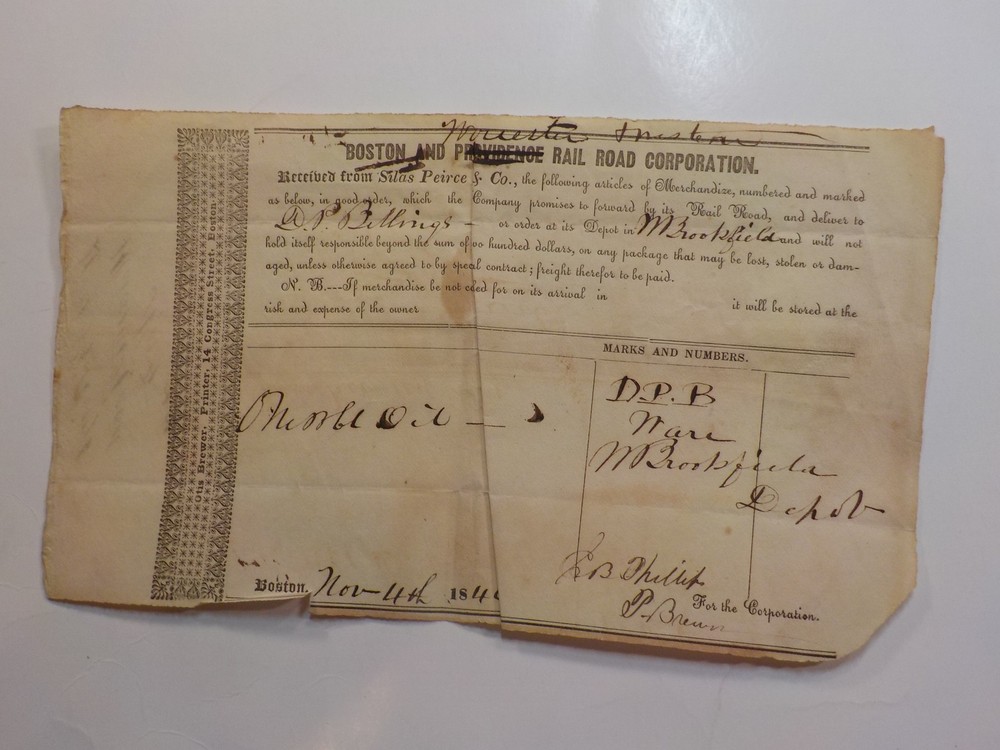 Worcester
BOSTON AND PROVIDENCE RAIL ROAD CORPORATION.
Received from Silas Peirce & Co., the following articles of Merchandize, numbered and marked
as below, in good order, which the Company promises to forward by its Rail Road, and deliver to
D. P. Billings - or order at its Depot in W Brookfield and will not
hold itself responsible beyond the sum of oo hundred dollars, on any package that may be lost, stolen or dam-
aged, unless otherwise agreed to by specal contract; freight therefor to be paid.
N. B.---If merchandise be not ced for on its arrival in it will be stored at the
risk and expense of the owner
MARKS AND NUMBERS.
One bbl Oil —
D.P.B
Ware
W Brookfield
Depot
Boston. Nov 4th 184
B Phillip
P. Brown
For the Corporation.
Otis Brewer, Printer, 14 Congress Street, Boston.